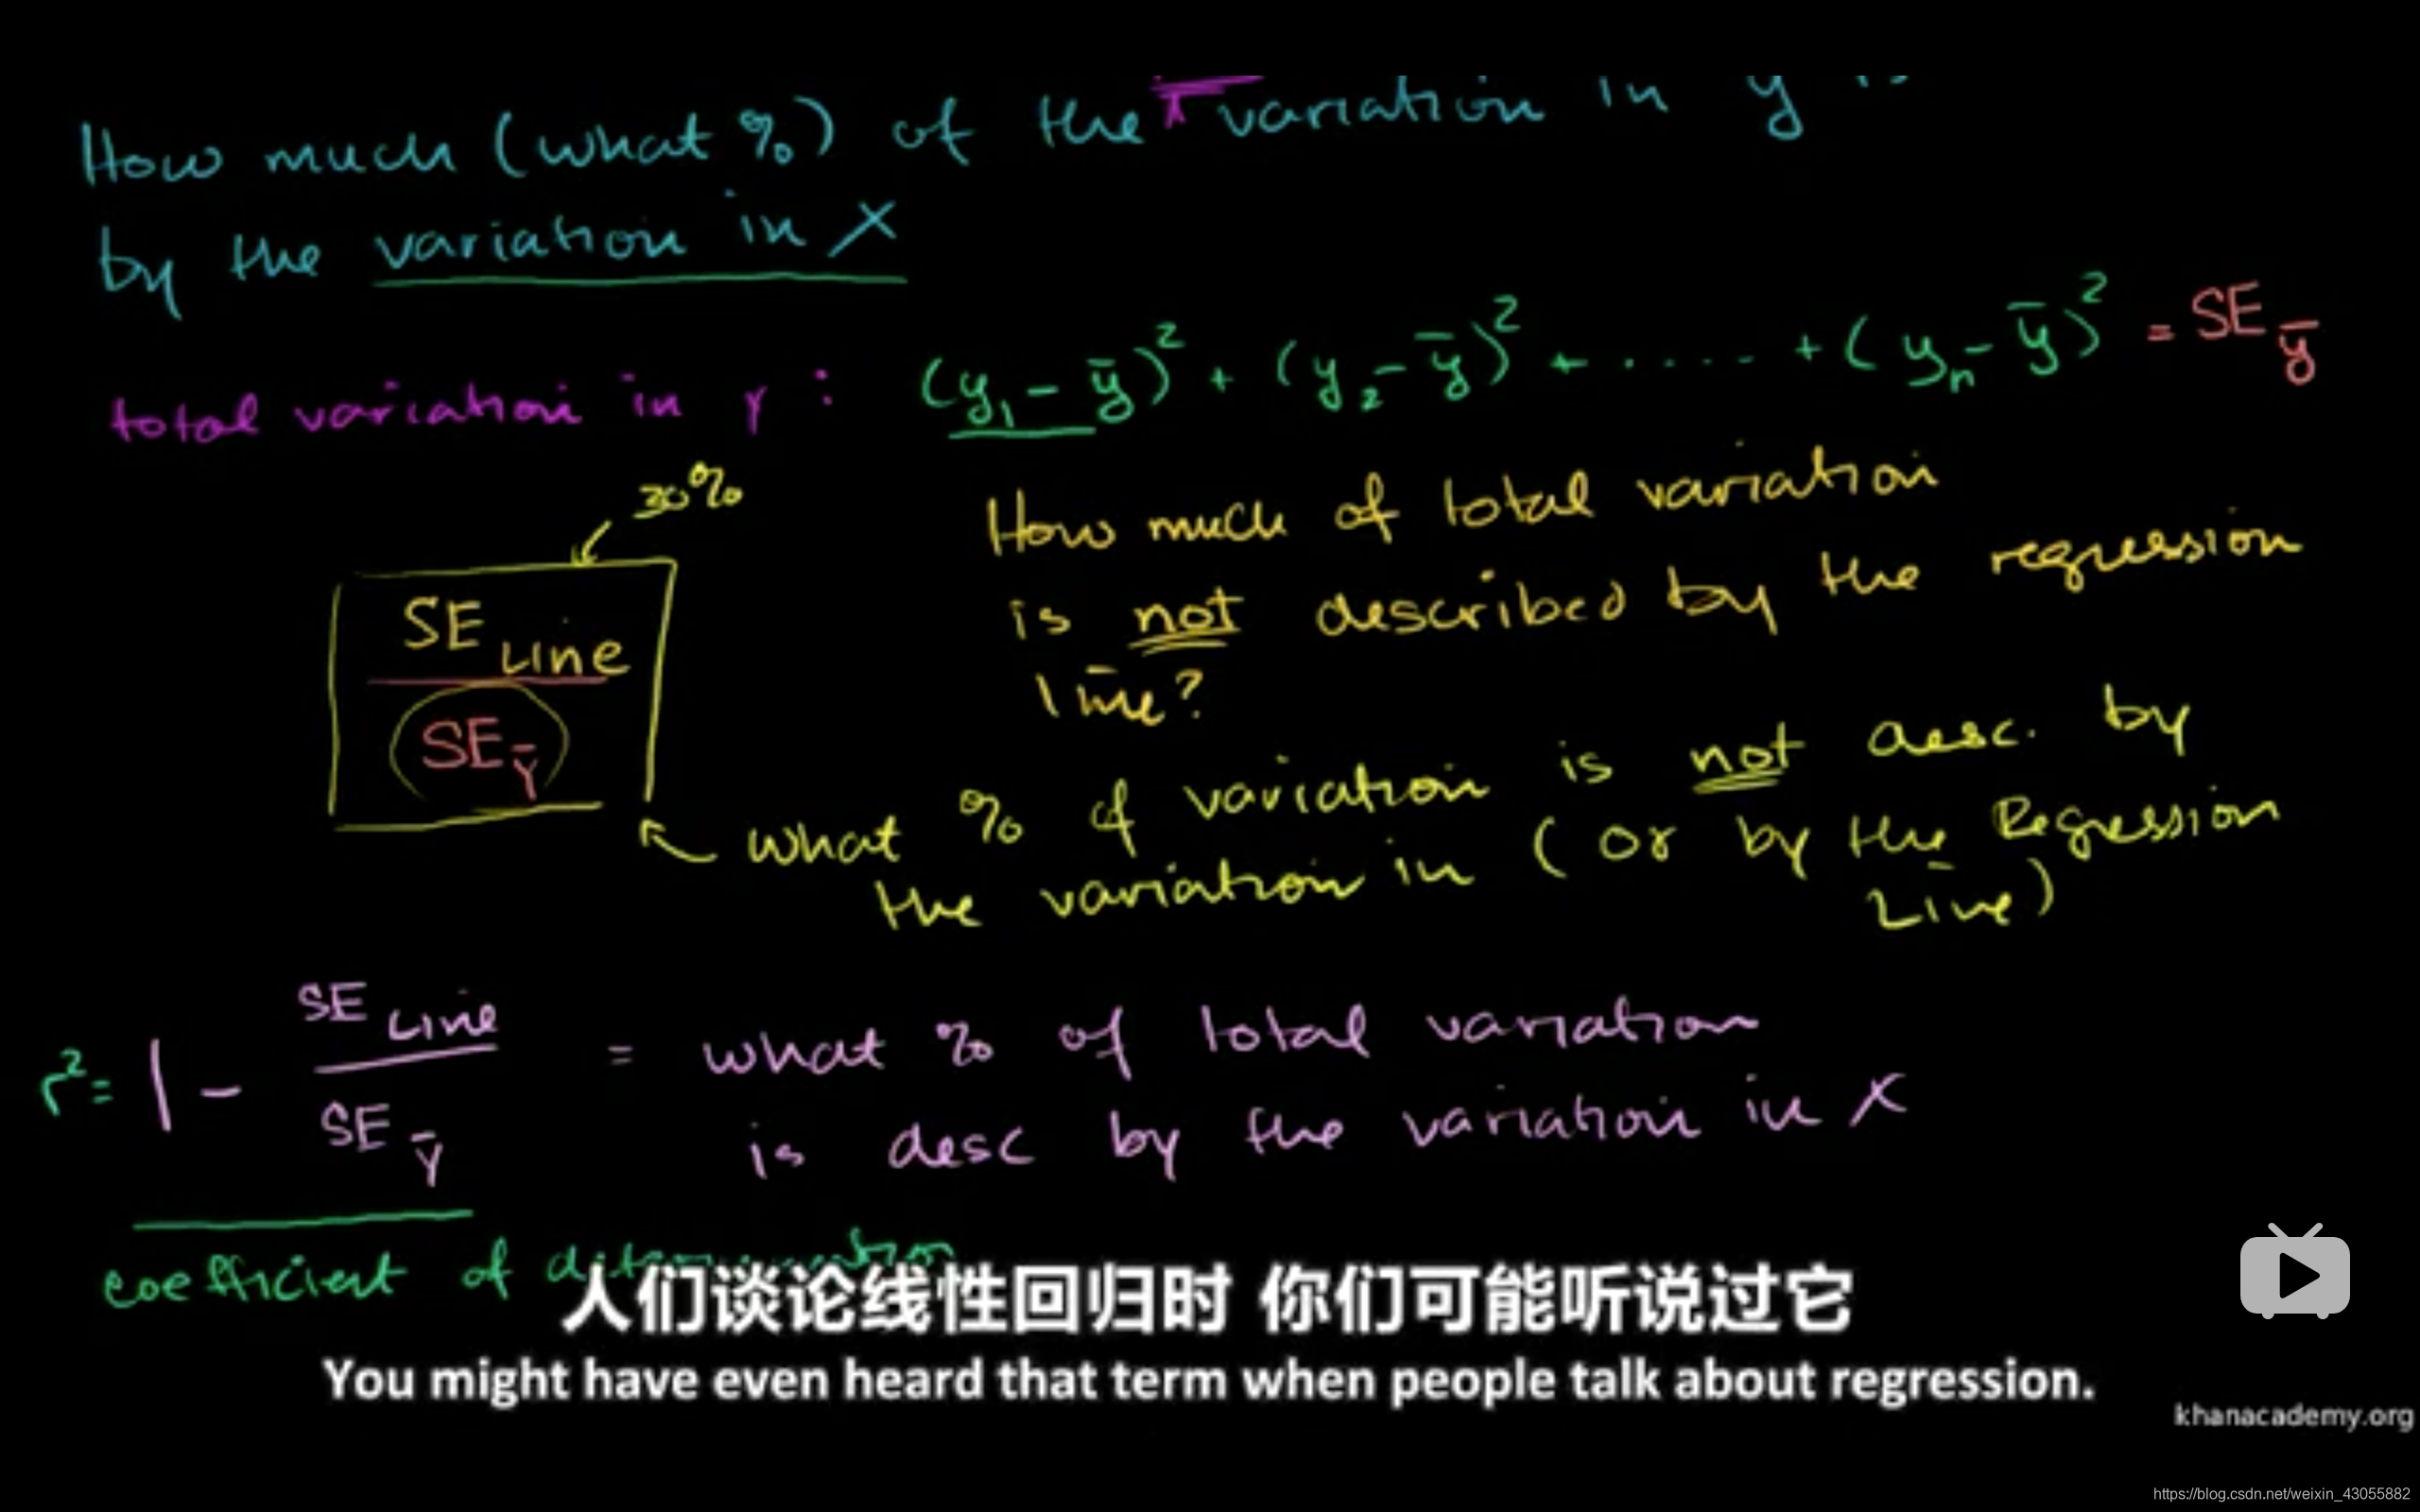 How much (what %) of the variation in y is
by the variation in X
total variation in Y : (y₁ - ȳ)² + (y₂ - ȳ)² + ..... + (yₙ - ȳ)² = SE ȳ
30%
SE Line
SE Ȳ
How much of total variation
is not described by the regression
line?
what % of variation is not desc. by
the variation in (or by the Regression
Line)
r² = 1 - SE Line / SE Ȳ = what % of total variation
is desc by the variation in X
coefficient of determination
人们谈论线性回归时 你们可能听说过它
You might have even heard that term when people talk about regression.
khanacademy.org
https://blog.csdn.net/weixin_43055882